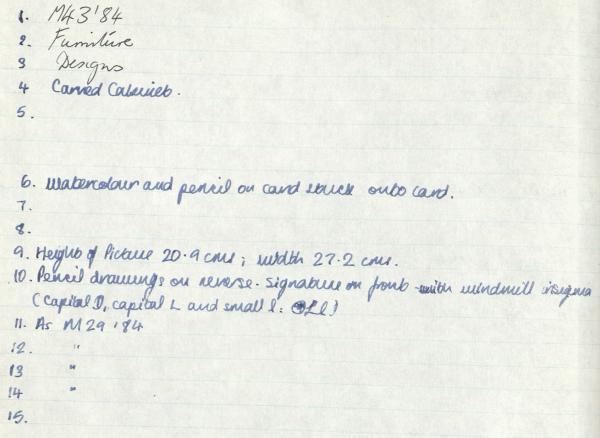 1. M43'84
2. Furniture
3 Designs
4 Carved Cabinets.
5.
6. Watercolour and pencil on card stuck onto card.
7.
8.
9. Height of Picture 20.9 cms; width 27.2 cms.
10. Pencil drawings on reverse. Signature on front with windmill insignia
(Capital D, capital L and small l: Ll)
11. As M29'84
12. "
13 "
14 "
15.